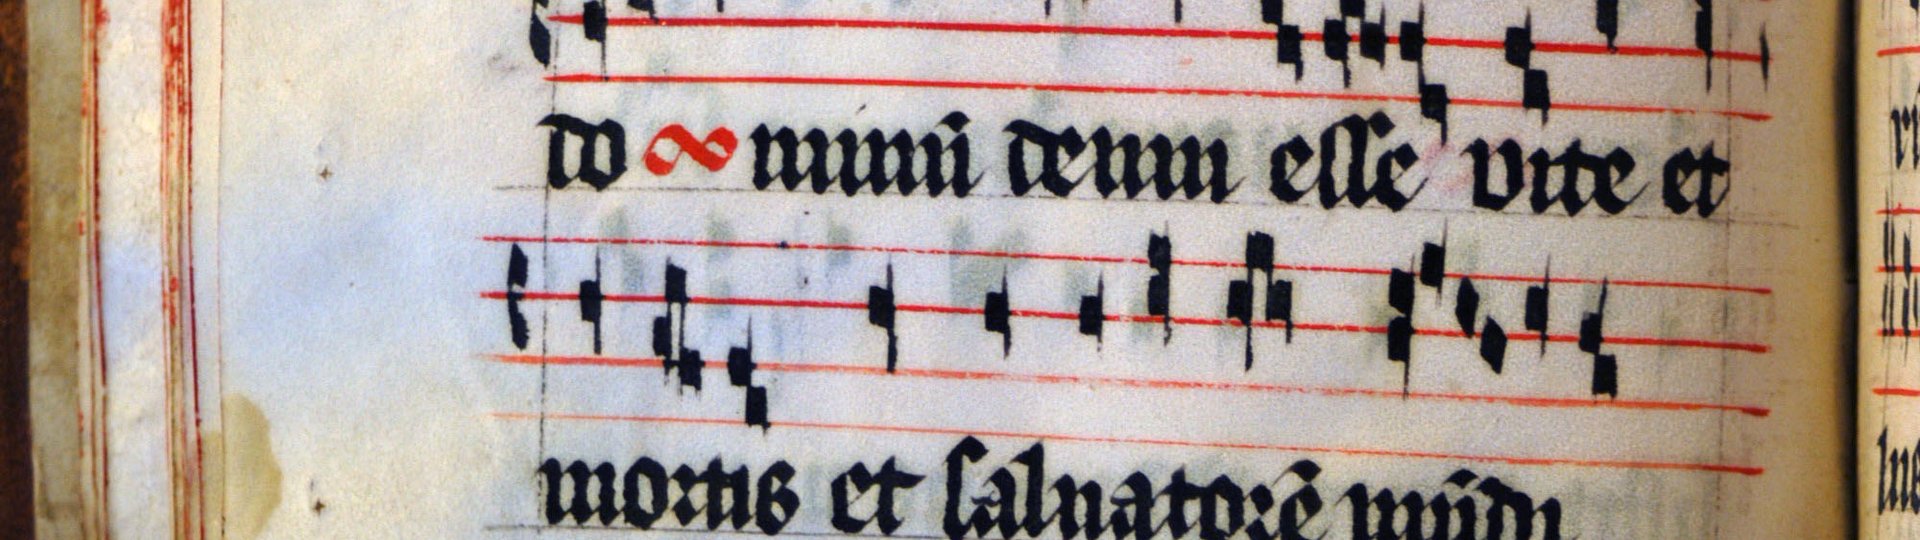 do minũ deum esse vite et
mortis et saluatorẽ mũdi